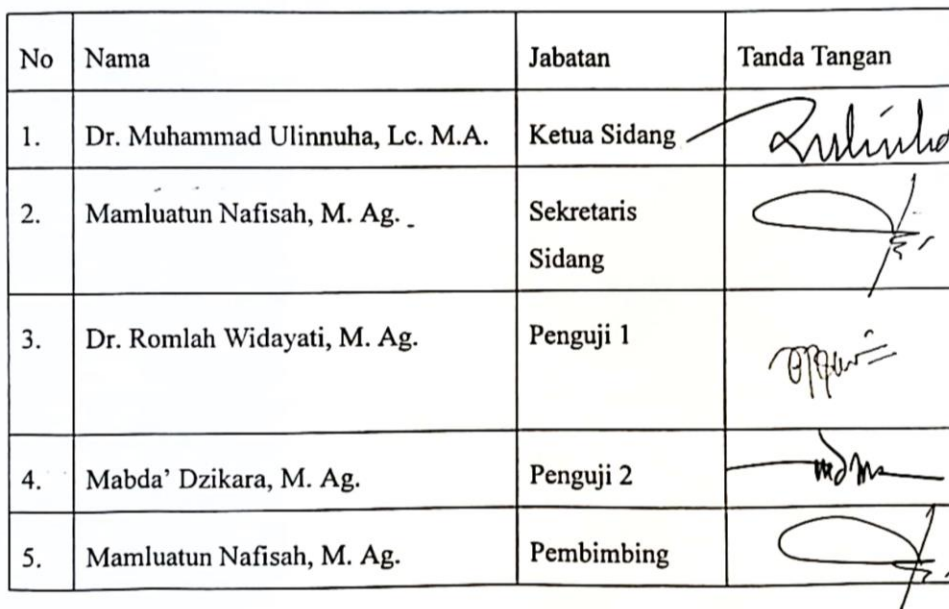 No Nama Jabatan Tanda Tangan
1. Dr. Muhammad Ulinnuha, Lc. M.A. Ketua Sidang
2. Mamluatun Nafisah, M. Ag. Sekretaris
Sidang
3. Dr. Romlah Widayati, M. Ag. Penguji 1
4. Mabda' Dzikara, M. Ag. Penguji 2
5. Mamluatun Nafisah, M. Ag. Pembimbing